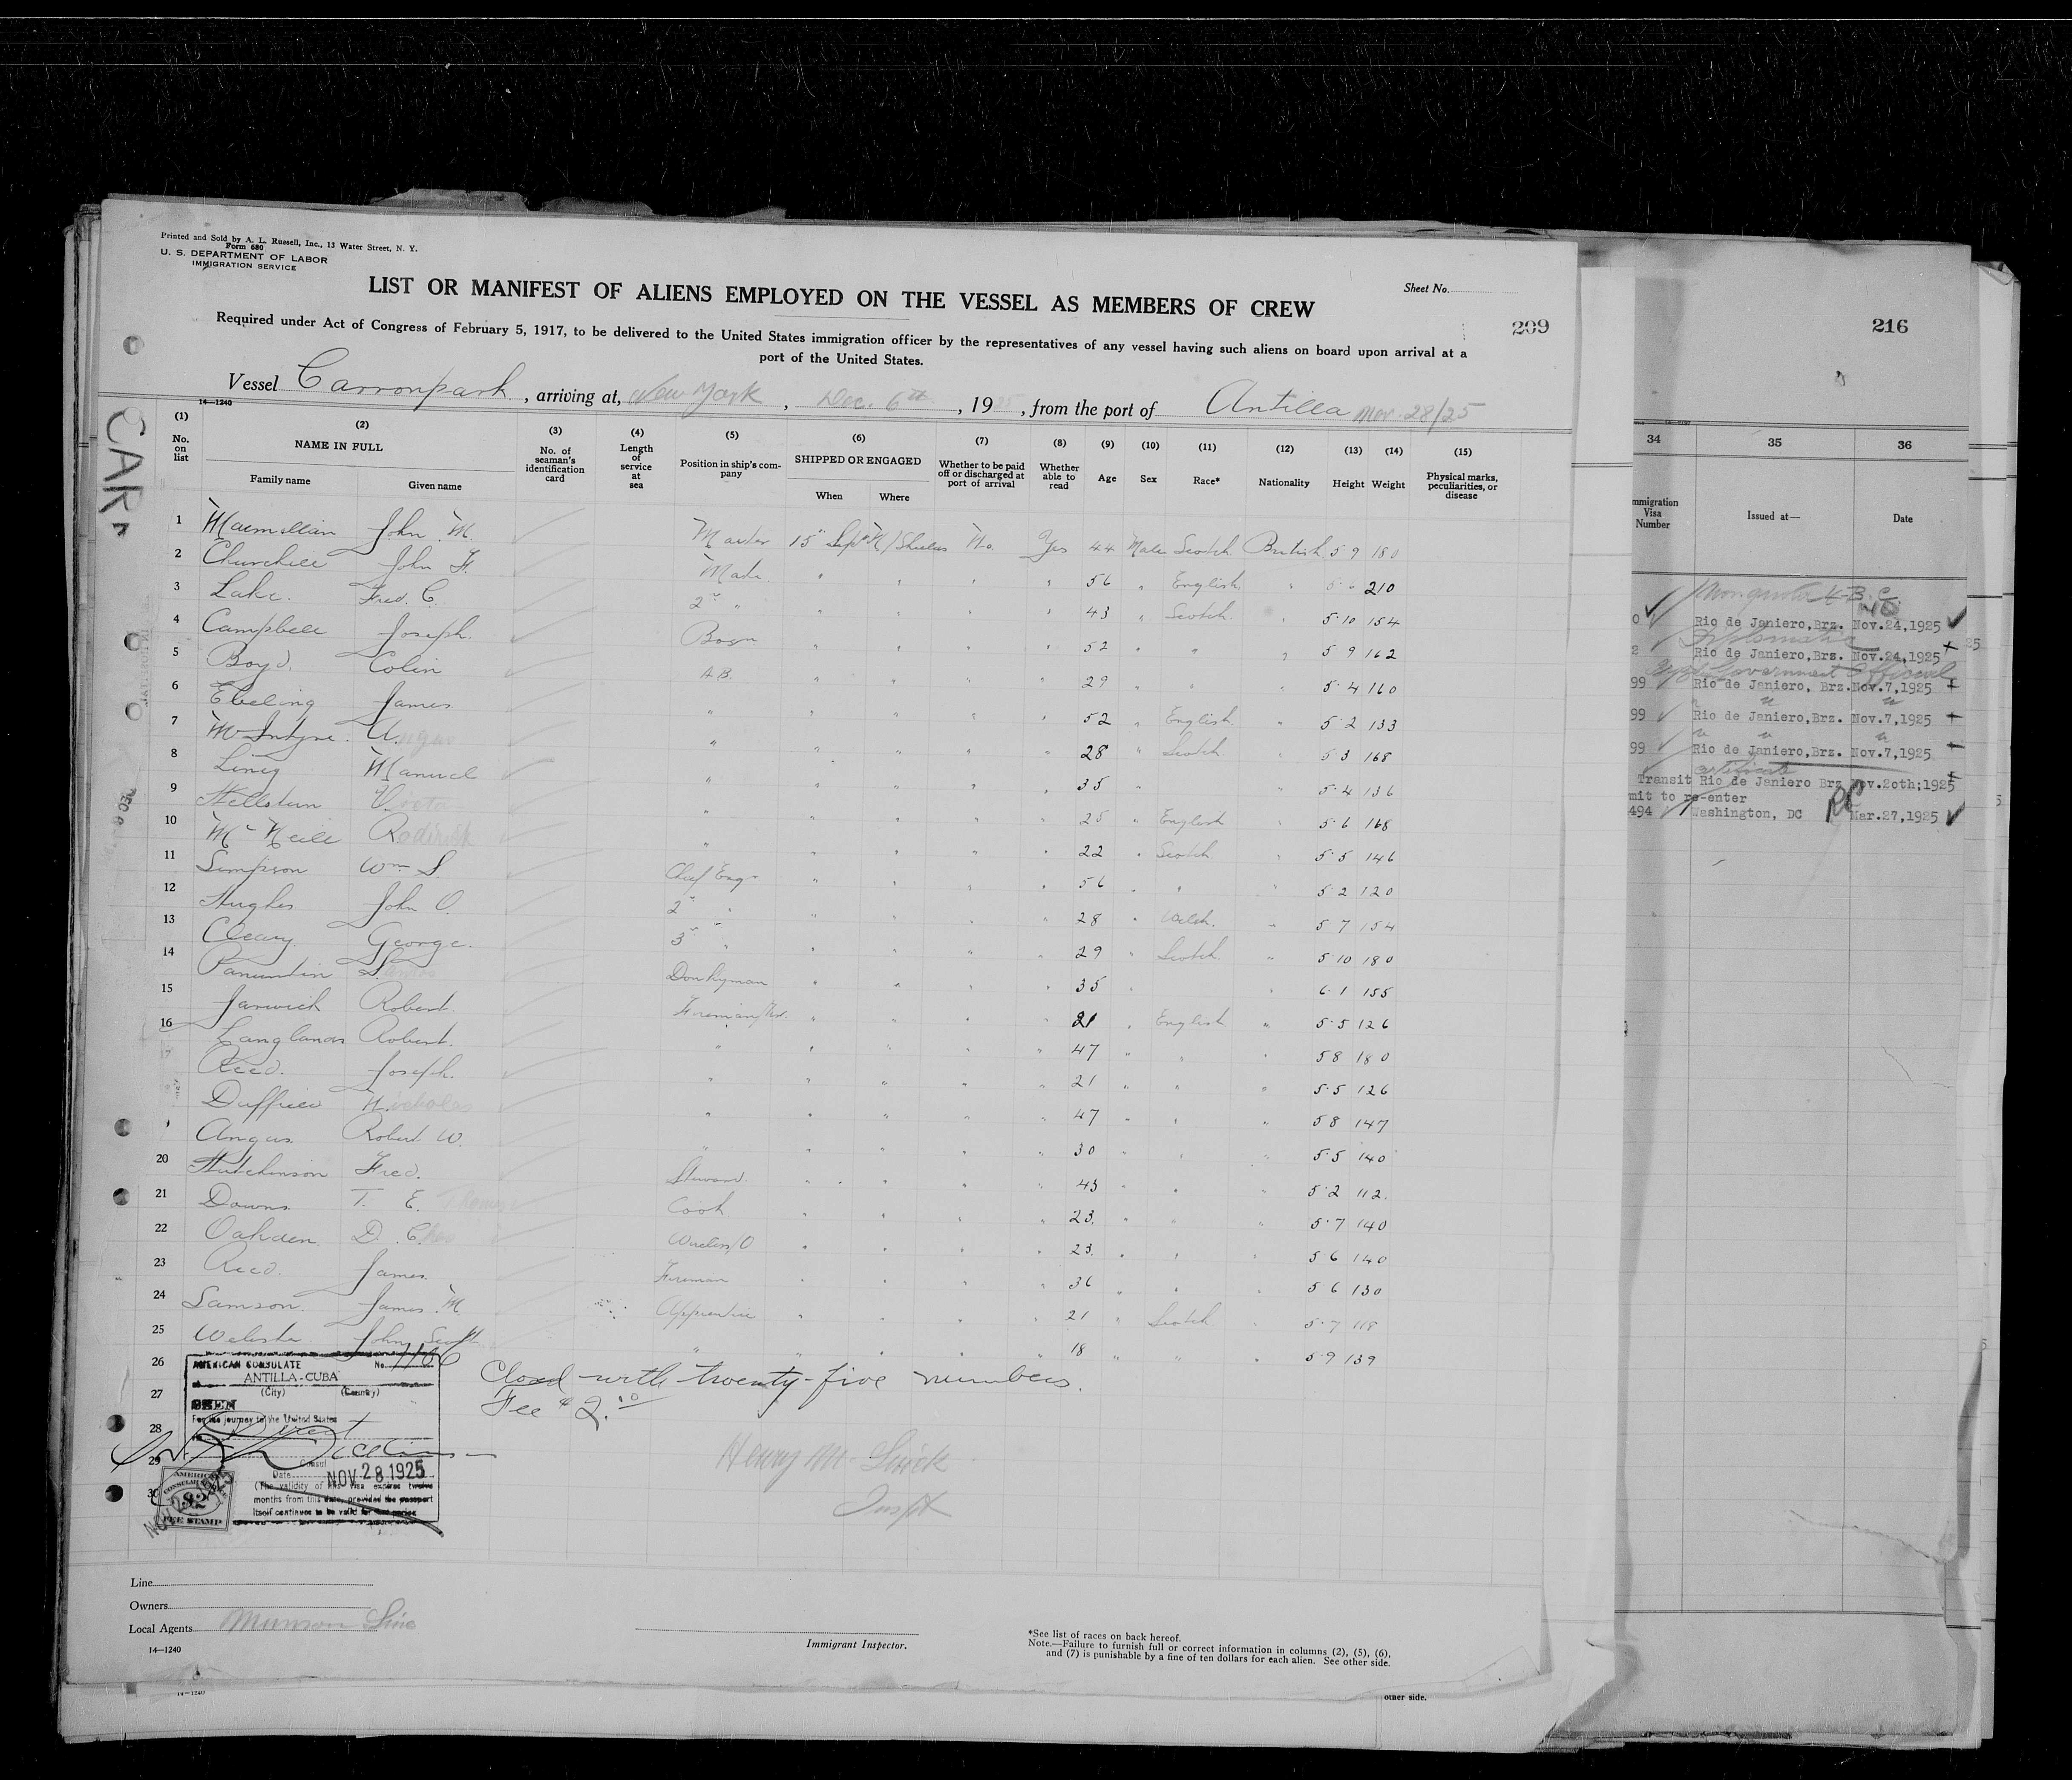 Printed and Sold by A. L. Russell, Inc., 13 Water Street, N. Y.
Form 680
U. S. DEPARTMENT OF LABOR
IMMIGRATION SERVICE
Sheet No.
LIST OR MANIFEST OF ALIENS EMPLOYED ON THE VESSEL AS MEMBERS OF CREW
209
Required under Act of Congress of February 5, 1917, to be delivered to the United States immigration officer by the representatives of any vessel having such aliens on board upon arrival at a
port of the United States.
Vessel Carronpark, arriving at, New York, Dec. 6th, 1925, from the port of Antilla Nov. 28/25
14—1240
CAR
(1) (2) (3) (4) (5) (6) (7) (8) (9) (10) (11) (12) (13) (14) (15)
No. on list NAME IN FULL No. of seaman's identification card Length of service at sea Position in ship's company SHIPPED OR ENGAGED Whether to be paid off or discharged at port of arrival Whether able to read Age Sex Race* Nationality Height Weight Physical marks, peculiarities, or disease
Family name Given name When Where
1 Macmillan John M. Master 15" Sept N/Shields No. Yes 44 Male Scotch British 5 9 180
2 Churchill John F. Mate " " " " 56 " English " 210
3 Lake. Fred. C. 2nd " " " " " 43 " Scotch " 5·10 154
4 Campbell Joseph. Bosn " " " " 52 " " " 5 9 162
5 Boyd. Colin A.B. " " " " 29 " " " 5·4 160
6 Ebeling James " " " " " 52 " English " 5·2 133
7 McIntyre. Angus " " " " " 28 " Scotch " 5·3 168
8 Manuel " " " " " 35 " " 5·4 136
9 " " " " " 25 " English " 5·6 168
10 McNeill " " " " " 22 " Scotch " 5·5 146
11 Simpson Wm S. Chief Engr " " " " 56 " " " 5 2 120
12 Hughes John O. 2nd " " " " " 28 " Welsh. " 5 7 154
13 Cleary. George. 3rd " " " " " 29 " Scotch. " 5·10 180
14 Donkeyman " " " " 35 " " 6·1 155
15 Jarwick Robert. " " " " 21 " English " 5·5 126
16 Langlands Robert. " " " " " 47 " " " 5 8 180
Reed. Joseph. " " " " " 21 " " " 5·5 126
Duffield Nicholas " " " " " 47 " " " 5 8 147
Angus Robert W. " " " " " 30 " " " 5·5 140
20 Hutchinson Fred. Steward. " " " " 43 " " " 5·2 112.
21 Downs T. E. Thomas Cook. " " " " 23. " " " 5·7 140
22 Oakden D. Wireless/O " " " " 23. " " " 5 6 140
23 Reed. James. Fireman " " " " 36 " " " 5 6 130
24 Samson. James M. Apprentice " " " " 21 " Scotch. " 5·7 118
25 Webster John Scott " " " " " 18 " " " 5·9 139
26
27
28
29
30
Closed with twenty-five numbers.
Fee $2.00
AMERICAN CONSULATE No. 1166
ANTILLA-CUBA
(City) (Country)
SEEN
For the journey to the United States
Direct
Consul
Date NOV 28 1925
(The validity of this visa expires twelve
months from this date, provided the passport
itself continues to be valid for that period
AMERICAN
CONSULAR SERVICE
$2
FEE STAMP
Henry M.
Inspt
Line
Owners
Local Agents Munson Line
14—1240
Immigrant Inspector.
*See list of races on back hereof.
Note.—Failure to furnish full or correct information in columns (2), (5), (6),
and (7) is punishable by a fine of ten dollars for each alien. See other side.
14—1240
other side.
216
34 35 36
Immigration Visa Number Issued at— Date
Rio de Janiero,Brz. Nov.24,1925
Diplomatic
Rio de Janiero,Brz. Nov.24,1925
Government Official
99 Rio de Janiero, Brz.Nov.7,1925
99 Rio de Janiero,Brz. Nov.7,1925
99 Rio de Janiero,Brz. Nov.7,1925
certificate
Transit Rio de Janiero Brz Nov.20th;1925
mit to re-enter
494 Washington, DC Mar.27,1925